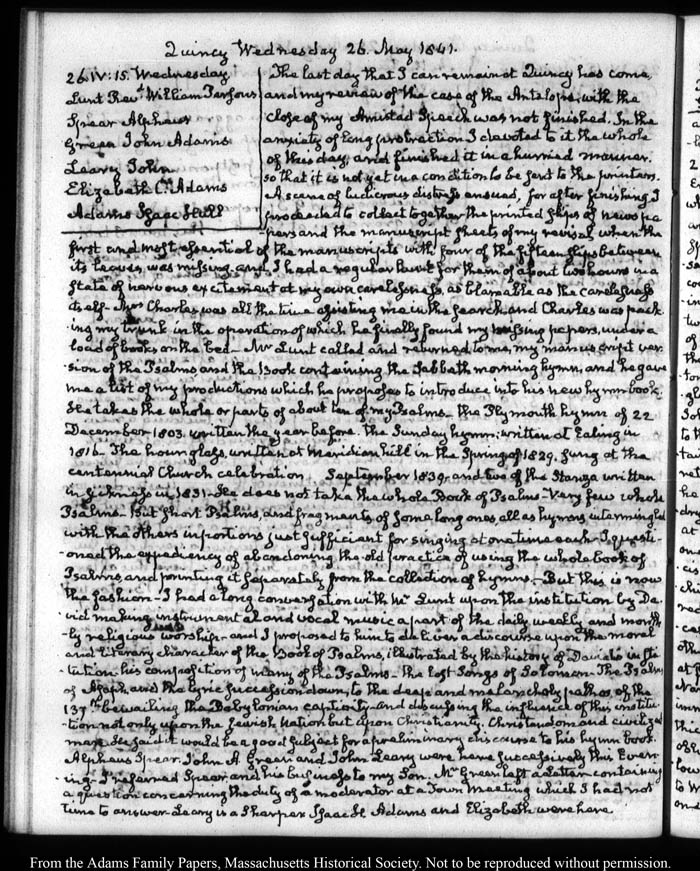 Quincy Wednesday 26. May 1841.
26. IV: 15. Wednesday
Lunt Revd. William Parsons
Spear Alpheus
Green John Adams
Leary John
Elizabeth C. Adams
Adams Isaac Hull
The last day that I can remain at Quincy has come,
and my review of the case of the Antelope, with the
close of my Amistad Speech was not finished. In the
anxiety of long protraction I devoted to it the whole
of this day, and finished it in a hurried manner.
so that it is not yet in a condition to be sent to the printers.
A scene of ludicrous distress ensued, for after finishing, I
proceeded to collect together the printed slips of newspa
pers and the manuscript sheets of my revisal, when the
first and most essential of the manuscripts with four of the fifteen slips between
its leaves, was missing, and I had a regular hunt for them of about two hours in a
state of nervous excitement at my own carelessness, as blamable as the carelessness
itself. Mrs Charles was all the time assisting me in the search, and Charles was pack
ing my trunk in the operation of which he finally found my missing papers, under a
load of books on the bed— Mr Lunt called and returned to me, my manuscript ver
sion of the Psalms and the Book containing the Sabbath morning hymn, and he gave
me a list of my productions which he proposes to introduce into his new hymn book.
He takes the whole or parts of about ten of my Psalms. the Plymouth hymn of 22
December 1803. written the year before. the Sunday hymn: written at Ealing in
1816. The hour glass, written at Meridian hill in the Spring of 1829. sung at the
centennial Church celebration September 1839. and two of the Stanza written
in sickness in 1831. He does not take the whole Book of Psalms— Very few whole
Psalms— But short Psalms, and fragments of some long ones all as hymns intermingled
with the others in portions just sufficient for singing at one time each— I questi-
oned the expediency of abandoning the old practice of using the whole book of
Psalms, and printing it separately from the collection of hymns.— But this is now
the fashion— I had a long conversation with Mr Lunt upon the institution by Da-
vid making instrumental and vocal music a part of the daily weekly and month
-ly religious worship— and I proposed to him to deliver a discourse upon the moral
and literary character of the Book of Psalms, illustrated by the history of David's insti
tution— his composition of many of the Psalms— the lost Songs of Solomon— The Psalms
of Asaph, and the lyric succession down, to the deep and melancholy pathos, of the
137th. bewailing the Babylonian captivity— and discussing the influence of this institu-
-tion not only upon the Jewish Nation but upon Christianity. Christendom and civilized
man. He said it would be a good subject for a preliminary discourse to his hymn book.
Alpheus Spear. John A. Green and John Leary were here successively this Even-
ing— I referred Spear and his business to my Son. Mr Green left a letter containing
a question concerning the duty of a moderator at a Town Meeting which I had not
time to answer— Leary is a sharper. Isaac H. Adams and Elizabeth were here.
From the Adams Family Papers, Massachusetts Historical Society. Not to be reproduced without permission.